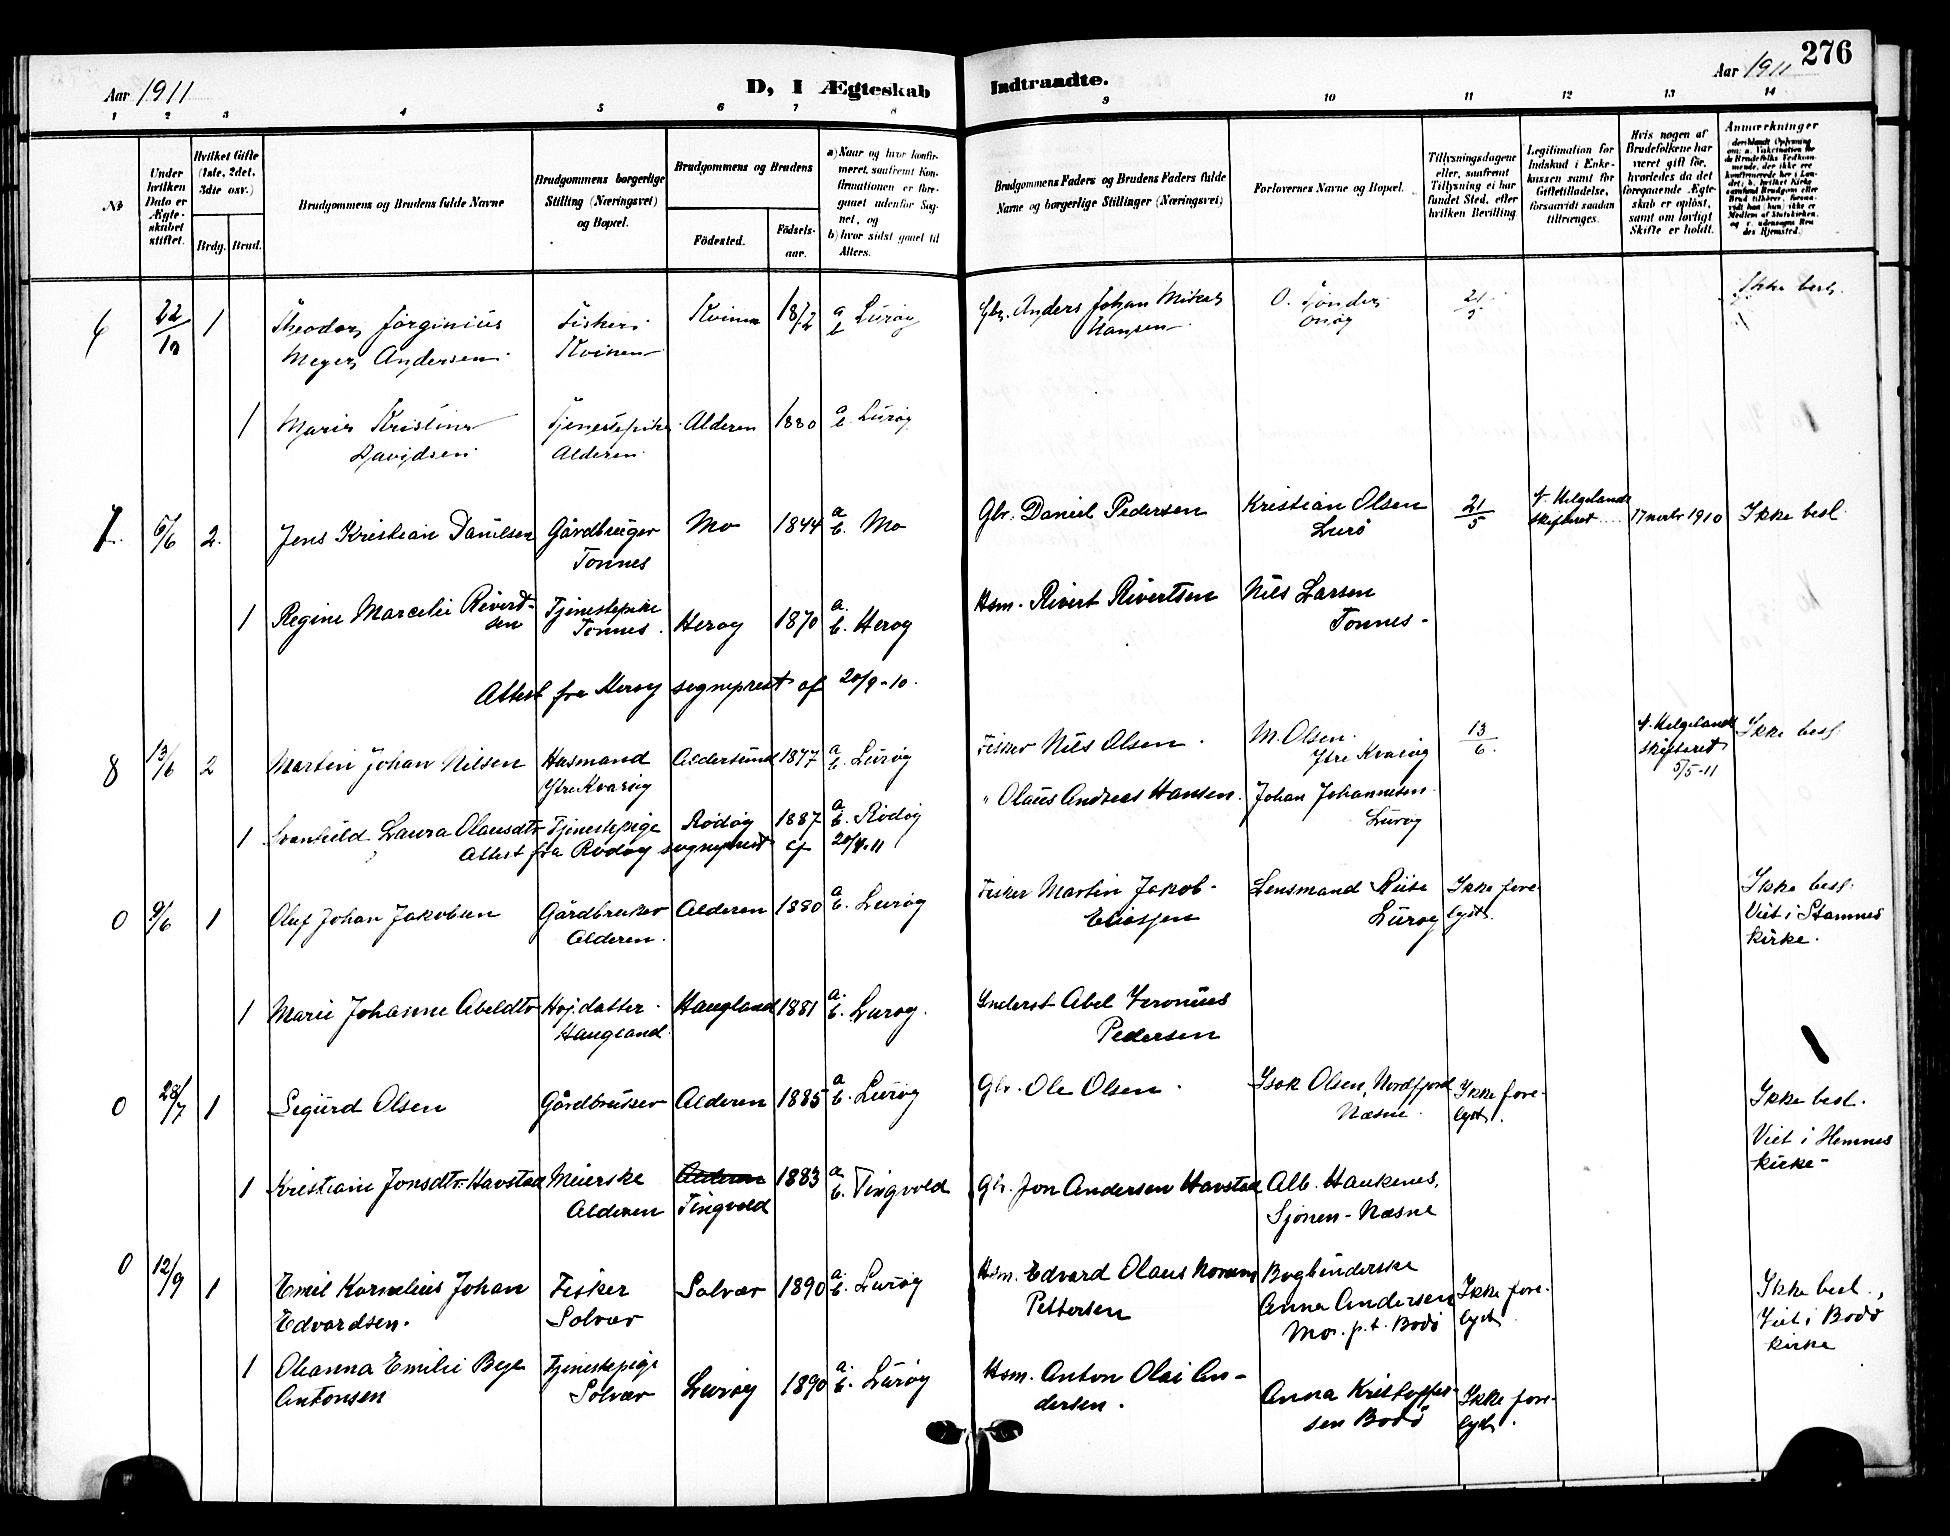 276
Aar 1911
D, I Ægteskab
Indtraadte.
Aar 1911
1 2 3 4 5 6 7 8
9 10 11 12 13 14
No
Under hvilken Dato er Ægteskabet stiftet.
Hvilket Gifte (1ste, 2det, 3die osv.)
Brdg. Brud.
Brudgommens og Brudens fulde Navne
Brudgommens borgerlige Stilling (Næringsvei) og Bopæl.
Brudgommens og Brudens
Fødested.
Fødselsaar.
a) Naar og hvor konfirmeret, saafremt Konfirmationen er foregaaet udenfor Sognet, og
b) hvor sidst gaaet til Alters.
Brudgommens Faders og Brudens Faders fulde Navne og borgerlige Stillinger (Næringsvei)
Forlovernes Navne og Bopæl.
Tillysningsdagene eller, saafremt Tillysning ei har fundet Sted, efter hvilken Bevilling.
Legitimation for Indskud i Enkekassen samt for Giftetilladelse, forsaavidt saadan tiltrænges.
Hvis nogen af Brudefolkene har været gift før, hvorledes da det foregaaende Ægteskab er opløst, samt om lovligt Skifte er holdt.
Anmærkninger
22/10 1 Theodor Jørginius Fisker Kvina 1872 a b Lurøy Gbr. Anders Johan Mikal O. Tønder 21/5 Ikke besl.
Meyer Andersen Kvinen Hansen Onøy
1 Marie Kristine Tjenestepike Alderen 1880 a b. Lurøy
Davidsen Alderen
7. 5/6 2. Jens Kristian Danielsen Gårdbruger Mo 1844 a b. Mo Gbr. Daniel Pedersen Kristian Olsen 21/5 N. Helgelands 17 novbr 1910 Ikke besl
Tonnes Lurø skifteret
1 Regine Marcelie Rivert- Tjenestepike Herøy 1870 a. b. Herøy Hsm. Rivert Rivertsen Nils Larsen
sen Tonnes. Tonnes -
Attest fra Herøy sogneprest af 20/9-10.
8 13/6 2 Martin Johan Nilsen Husmand Aldersund 1877 a b. Lurøy Fisker Nils Olsen. M. Olsen. 13/6. N. Helgelands Ikke besl.
Ytre Kvarøy Ytre Kvarøy skifteret 5/5-11
1 Svanhild Laura Olausdtr Tjenestepige Rødøy 1887 a b. Rødøy " Olaus Andreas Hansen. Johan Johannesen.
Attest fra Rødøy sogneprest af 20/4-11 Lurøy
0 9/6 1 Oluf Johan Jakobsen Gårdbruker Alderen 1880 a b. Lurøy Fisker Martin Jakob- Lensmand Riise Ikke fore- Ikke besl.
Alderen. Eliassen Lurøy lyst. Viet i Stamnes
kirke.
1 Marie Johanne Abeldtr Hoj.datter. Haugland 1881 a. b. Lurøy. Inderst Abel Jeronius
Haugland. Pedersen
0 28/7 1 Sigurd Olsen Gårdbruker Alderen 1885 a b. Lurøy Gbr. Ole Olsen. Isak Olsen, Nordfjord Ikke fore- Ikke besl.
Næsne. lyst. Viet i Hemnes
kirke-
1 Kristiane Jonsdtr. Havstad Meierske Alderen 1883 a. b. Tingvold Gbr. Jon Andersen Havstad Alb. Haukenes,
Alderen Tingvold Sjonen - Næsne
0 12/9 1 Emil Kornelius Johan Fisker Solvær 1890 a. b. Lurøy Hsm. Edvard Olaus Bogbinderske Ikke fore- Ikke besl.,
Edvardsen. Solvær Pettersen Anna Andersen lyst. Viet i Bodø
Mo. p.t. Bodø kirke
1 Oleanna Emilie Tjenestepige Lurøy 1890 a. b. Lurøy Hsm. Anton Olai An- Anna Kristoffer- Ikke fore-
Antonsen Solvær dersen. sen Bodø lyst.